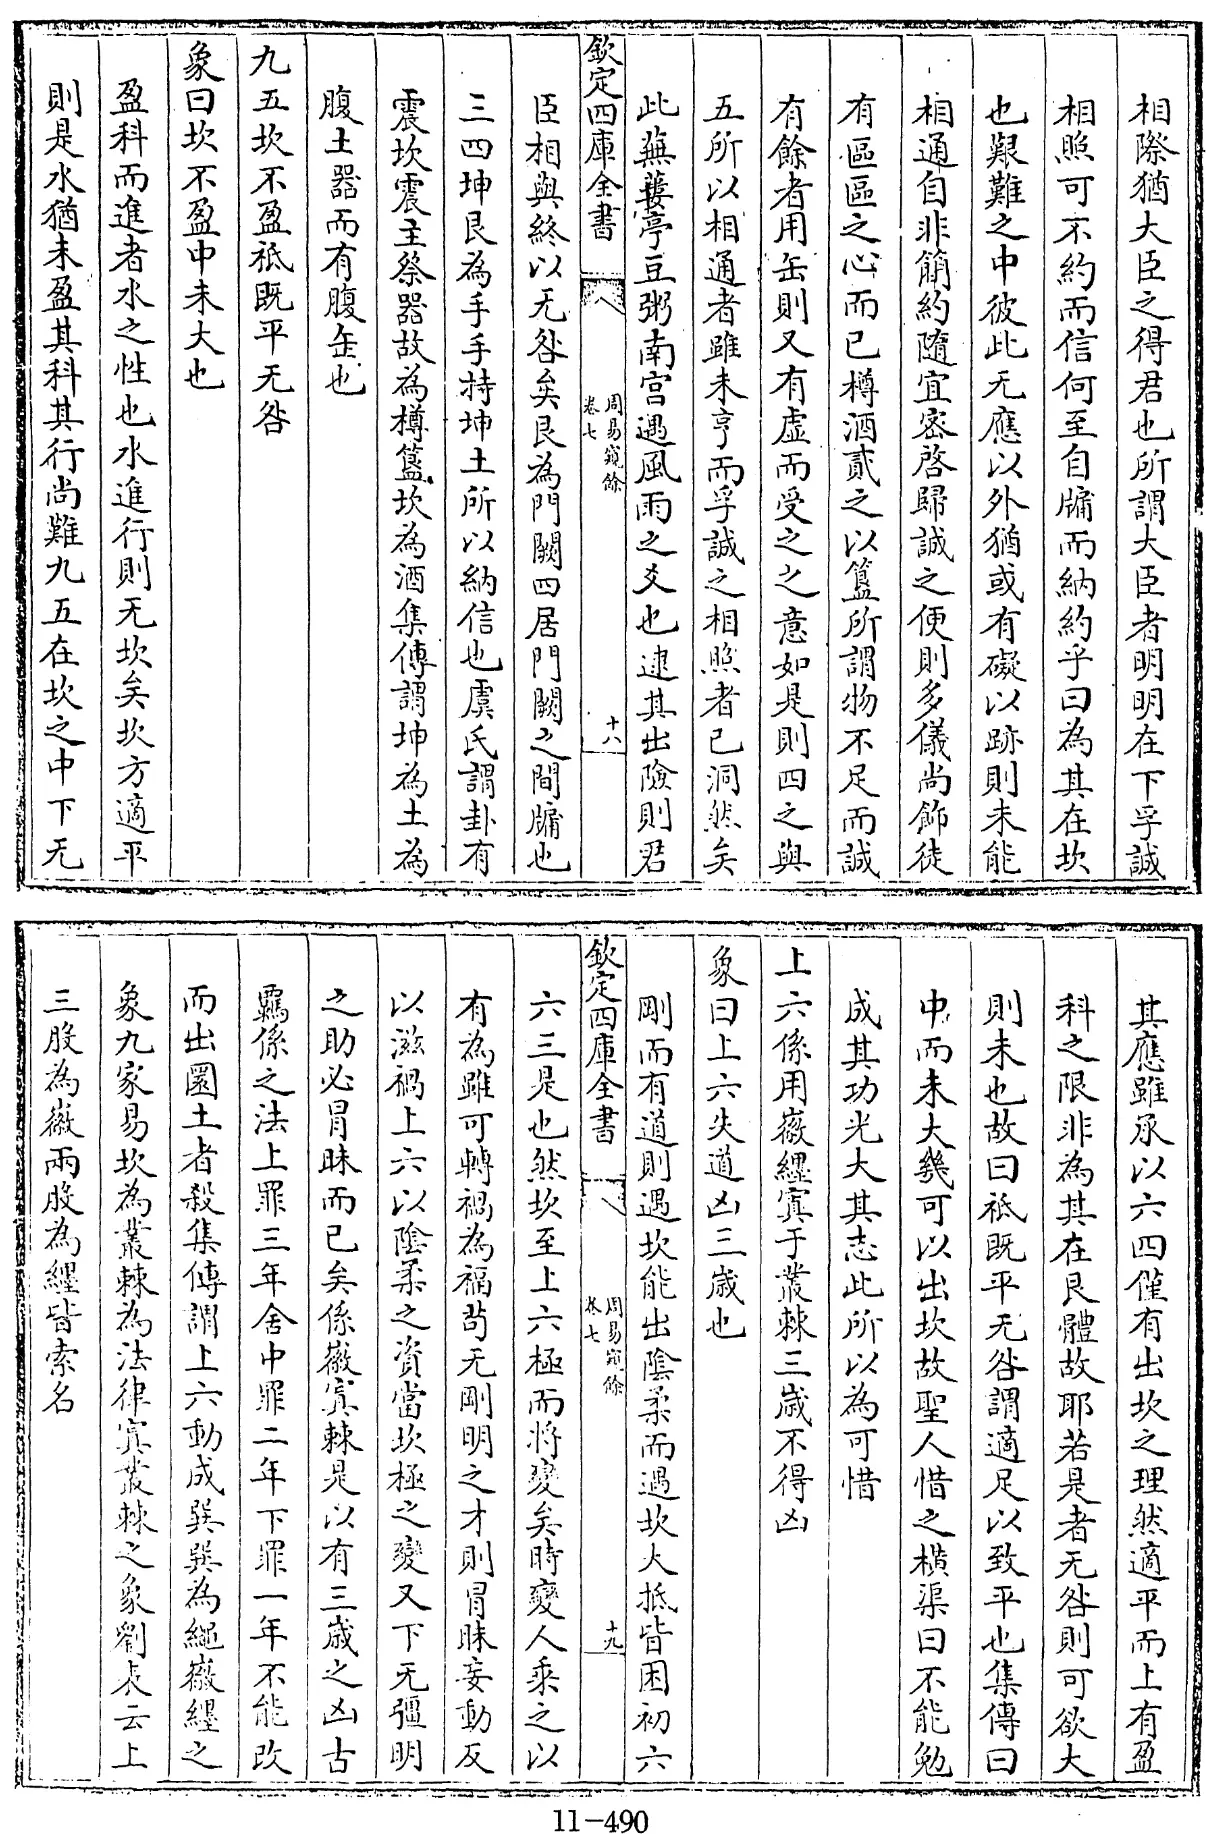 相際猶大臣之得君也所謂大臣者明明在下孚誠
相照可不約而信何至自牖而納約乎曰為其在坎
也艱難之中彼此无應以外猶或有礙以跡則未能
相通自非簡約隨宜密啓歸誠之便則多儀尚飾徒
有區區之心而已樽酒貳之以簋所謂物不足而誠
有餘者用缶則又有虛而受之之意如是則四之與
五所以相通者雖未亨而孚誠之相照者已洞然矣
此蕪蔞亭豆粥南宫遇風雨之爻也逮其出險則君
欽定四庫全書
周易窺餘
卷七
十八
臣相與終以无咎矣艮為門闕四居門闕之間牖也
三四坤艮為手手持坤土所以納信也虞氏謂卦有
震坎震主祭器故為樽簋坎為酒集傳謂坤為土為
腹土器而有腹缶也
九五坎不盈祗既平无咎
象曰坎不盈中未大也
盈科而進者水之性也水進行則无坎矣坎方適平
則是水猶未盈其科其行尚難九五在坎之中下无
其應雖承以六四僅有出坎之理然適平而上有盈
科之限非為其在艮體故耶若是者无咎則可欲大
則未也故曰祗既平无咎謂適足以致平也集傳曰
中而未大幾可以出坎故聖人惜之橫渠曰不能勉
成其功光大其志此所以為可惜
上六係用徽纆寘于叢棘三歲不得凶
象曰上六失道凶三歲也
剛而有道則遇坎能出陰柔而遇坎大抵皆困初六
欽定四庫全書
周易窺餘
卷七
十九
六三是也然坎至上六極而將變矣時變人乘之以
有為雖可轉禍為福苟无剛明之才則冒昧妄動反
以滋禍上六以陰柔之資當坎極之變又下无彊明
之助必冒昧而已矣係徽寘棘是以有三歲之凶古
羈係之法上罪三年舍中罪二年下罪一年不能改
而出圜土者殺集傳謂上六動成巽巽為繩徽纆之
象九家易坎為叢棘為法律寘叢棘之象劉表云上
三股為徽兩股為纆皆索名
11-490